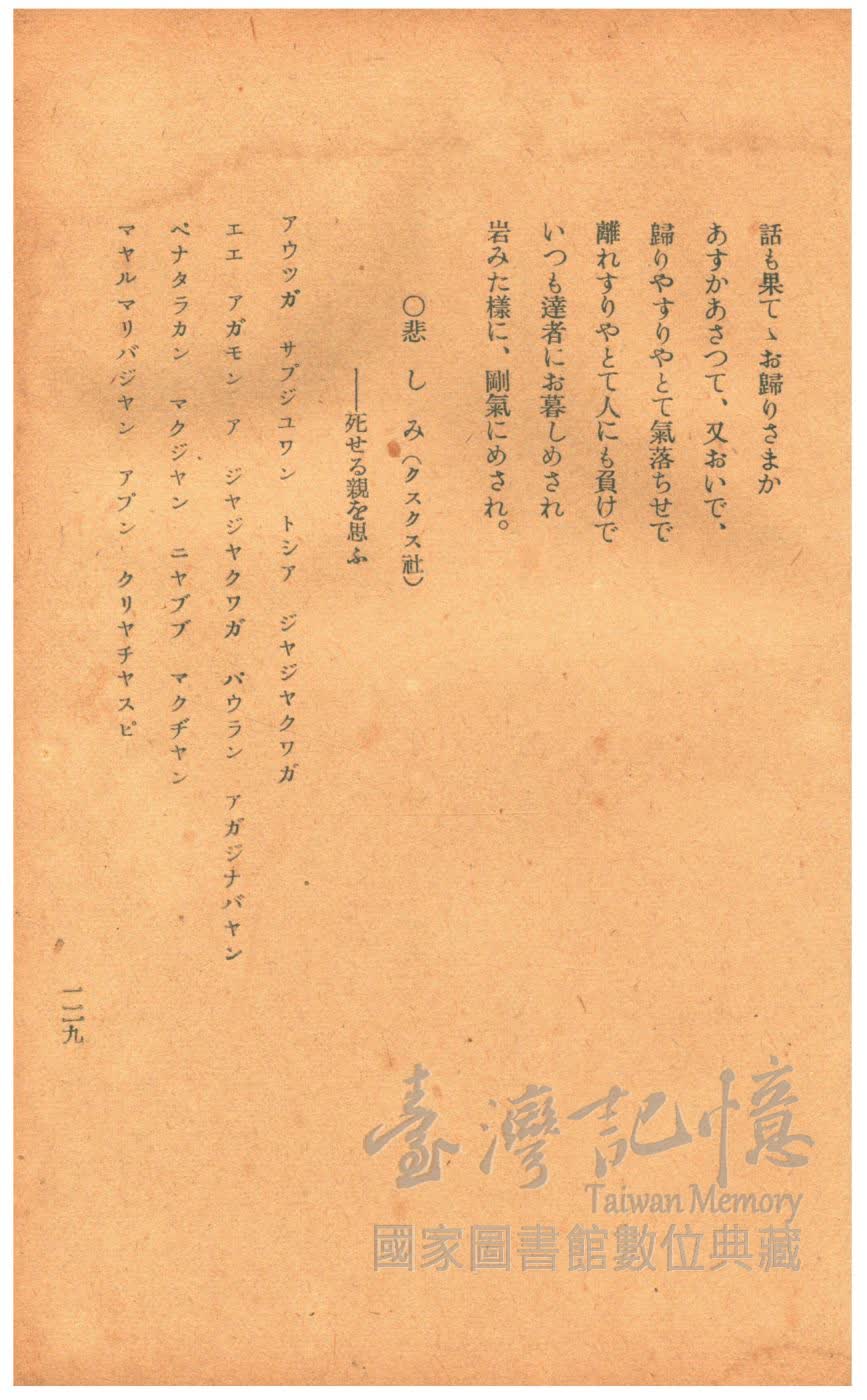 話も果てゝお歸りさまか
あすかあさつて、又おいで、
歸りやすりやとて氣落ちせで
離れすりやとて人にも負けで
いつも達者にお暮しめされ
岩みた樣に、剛氣にめされ。
〇悲しみ（クスクス社）
――死せる親を思ふ
アウツガ サプジユワン トシア ジヤジヤクワガ
エエ アガモン ア ジヤジヤクワガ パウラン アガジナバヤン
ペナタラカン マクジヤン ニヤブブ マクヂヤン
マヤルマリバジヤン アブン クリヤチヤスピ
一二九
臺灣記憶
Taiwan Memory
國家圖書館數位典藏